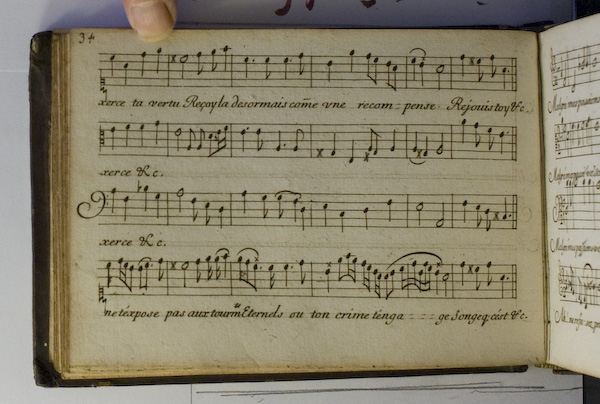 34
xerce ta vertu Reçoy la desormais com̄e vne recom - pense. Rejouis toy &c.
xerce &c.
xerce &c.
ne t'expose pas aux tourm̄ Eternels ou ton crime t'enga - - - ge Songe q; c'est &c.